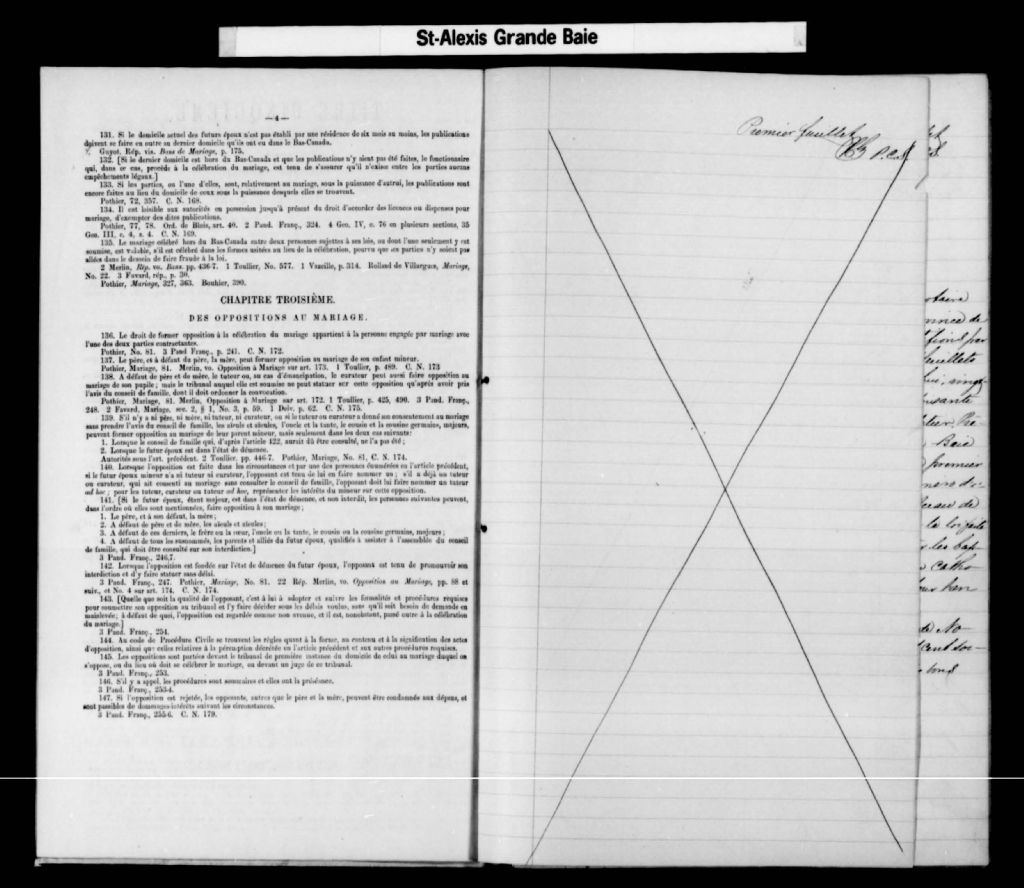 St-Alexis Grande Baie
—4—
131. Si le domicile actuel des futurs époux n'est pas établi par une résidence de six mois au moins, les publications
doivent se faire en outre au dernier domicile qu'ils ont eu dans le Bas-Canada.
Guyot. Rép. vis. Bans de Mariage, p. 175.
132. [Si le dernier domicile est hors du Bas-Canada et que les publications n'y aient pas été faites, le fonctionnaire
qui, dans ce cas, procède à la célébration du mariage, est tenu de s'assurer qu'il n'existe entre les parties aucuns
empêchements légaux.]
133. Si les parties, ou l'une d'elles, sont, relativement au mariage, sous la puissance d'autrui, les publications sont
encore faites au lieu du domicile de ceux sous la puissance desquels elles se trouvent.
Pothier, 72, 357. C. N. 168.
134. Il est loisible aux autorités en possession jusqu'à présent du droit d'accorder des licences ou dispenses pour
mariage, d'exempter des dites publications.
Pothier, 77, 78. Ord. de Blois, art. 40. 2 Pand. Franç., 324. 4 Geo. IV, c. 76 en plusieurs sections, 35
Geo. III, c. 4, s. 4. C. N. 169.
135. Le mariage célébré hors du Bas-Canada entre deux personnes sujettes à ses lois, ou dont l'une seulement y est
soumise, est valable, s'il est célébré dans les formes usitées au lieu de la célébration, pourvu que ces parties n'y soient pas
allées dans le dessein de faire fraude à la loi.
2 Merlin, Rép. vo. Bans. pp. 436-7. 1 Toullier, No. 577. 1 Vazeille, p. 314. Rolland de Villargues, Mariage,
No. 22. 3 Favard, rép., p. 30.
Pothier, Mariage, 327, 363. Bouhier, 390.
CHAPITRE TROISIÈME.
DES OPPOSITIONS AU MARIAGE.
136. Le droit de former opposition à la célébration du mariage appartient à la personne engagée par mariage avec
l'une des deux parties contractantes.
Pothier, No. 81. 3 Pand Franç., p. 241. C. N. 172.
137. Le père, et à défaut du père, la mère, peut former opposition au mariage de son enfant mineur.
Pothier, Mariage, 81. Merlin, vo. Opposition à Mariage sur art. 173. 1 Toullier, p. 489. C. N. 173
138. A défaut de père et de mère, le tuteur ou, au cas d'émancipation, le curateur peut aussi faire opposition au
mariage de son pupile; mais le tribunal auquel elle est soumise ne peut statuer sur cette opposition qu'après avoir pris
l'avis du conseil de famille, dont il doit ordonner la convocation.
Pothier, Mariage, 81. Merlin, Opposition à Mariage sur art. 172. 1 Toullier, p. 425, 490. 3 Pand. Franç.,
248. 2 Favard, Mariage, sec. 2, § 1, No. 3, p. 59. 1 Delv. p. 62. C. N. 175.
139. S'il n'y a ni père, ni mère, ni tuteur, ni curateur, ou si le tuteur ou curateur a donné son consentement au mariage
sans prendre l'avis du conseil de famille, les aïeuls et aïeules, l'oncle et la tante, le cousin et la cousine germains, majeurs,
peuvent former opposition au mariage de leur parent mineur, mais seulement dans les deux cas suivants:
1. Lorsque le conseil de famille qui, d'après l'article 122, aurait dû être consulté, ne l'a pas été;
2. Lorsque le futur époux est dans l'état de démence.
Autorités sous l'art. précédent. 2 Toullier. pp. 446-7. Pothier, Mariage, No. 81, C. N. 174.
140. Lorsque l'opposition est faite dans les circonstances et par une des personnes énumérées en l'article précédent,
si le futur époux mineur n'a ni tuteur ni curateur, l'opposant est tenu de lui en faire nommer un; s'il a déjà un tuteur
ou curateur, qui ait consenti au mariage sans consulter le conseil de famille, l'opposant doit lui faire nommer un tuteur
ad hoc; pour les tuteur, curateur ou tuteur ad hoc, représenter les intérêts du mineur sur cette opposition.
141. [Si le futur époux, étant majeur, est dans l'état de démence, et non interdit, les personnes suivantes peuvent,
dans l'ordre où elles sont mentionnées, faire opposition à son mariage;
1. Le père, et à son défaut, la mère;
2. A défaut de père et de mère, les aïeuls et aïeules;
3. A défaut de ces derniers, le frère ou la sœur, l'oncle ou la tante, le cousin ou la cousine germains, majeurs;
4. A défaut de tous les susnommés, les parents et alliés du futur époux, qualifiés à assister à l'assemblée du conseil
de famille, qui doit être consulté sur son interdiction.]
3 Pand. Franç., 246,7.
142. Lorsque l'opposition est fondée sur l'état de démence du futur époux, l'opposant est tenu de promouvoir son
interdiction et d'y faire statuer sans délai.
3 Pand. Franç., 247. Pothier, Mariage, No. 81. 22 Rép. Merlin, vo. Opposition au Mariage, pp. 88 et
suiv., et No. 4 sur art. 174. C. N. 174.
143. [Quelle que soit la qualité de l'opposant, c'est à lui à adopter et suivre les formalités et procédures requises
pour soumettre son opposition au tribunal et l'y faire décider sous les délais voulus, sans qu'il soit besoin de demande en
mainlevée; à défaut de quoi, l'opposition est regardée comme non avenue, et il est, nonobstant, passé outre à la célébration
du mariage.]
3 Pand. Franç., 254.
144. Au code de Procédure Civile se trouvent les règles quant à la forme, au contenu et à la signification des actes
d'opposition, ainsi que celles relatives à la péremption décrétée en l'article précédent et aux autres procédures requises.
145. Les oppositions sont portées devant le tribunal de première instance du domicile de celui au mariage duquel on
s'oppose, ou du lieu où doit se célébrer le mariage, ou devant un juge de ce tribunal.
3 Pand. Franç., 253.
146. S'il y a appel, les procédures sont sommaires et elles ont la préséance.
3 Pand. Franç., 253-4.
147. Si l'opposition est rejetée, les opposants, autres que le père et la mère, peuvent être condamnés aux dépens, et
sont passibles de dommages-intérêts suivant les circonstances.
3 Pand. Franç., 255-6. C. N. 179.
Premier feuillet
P.C.S.